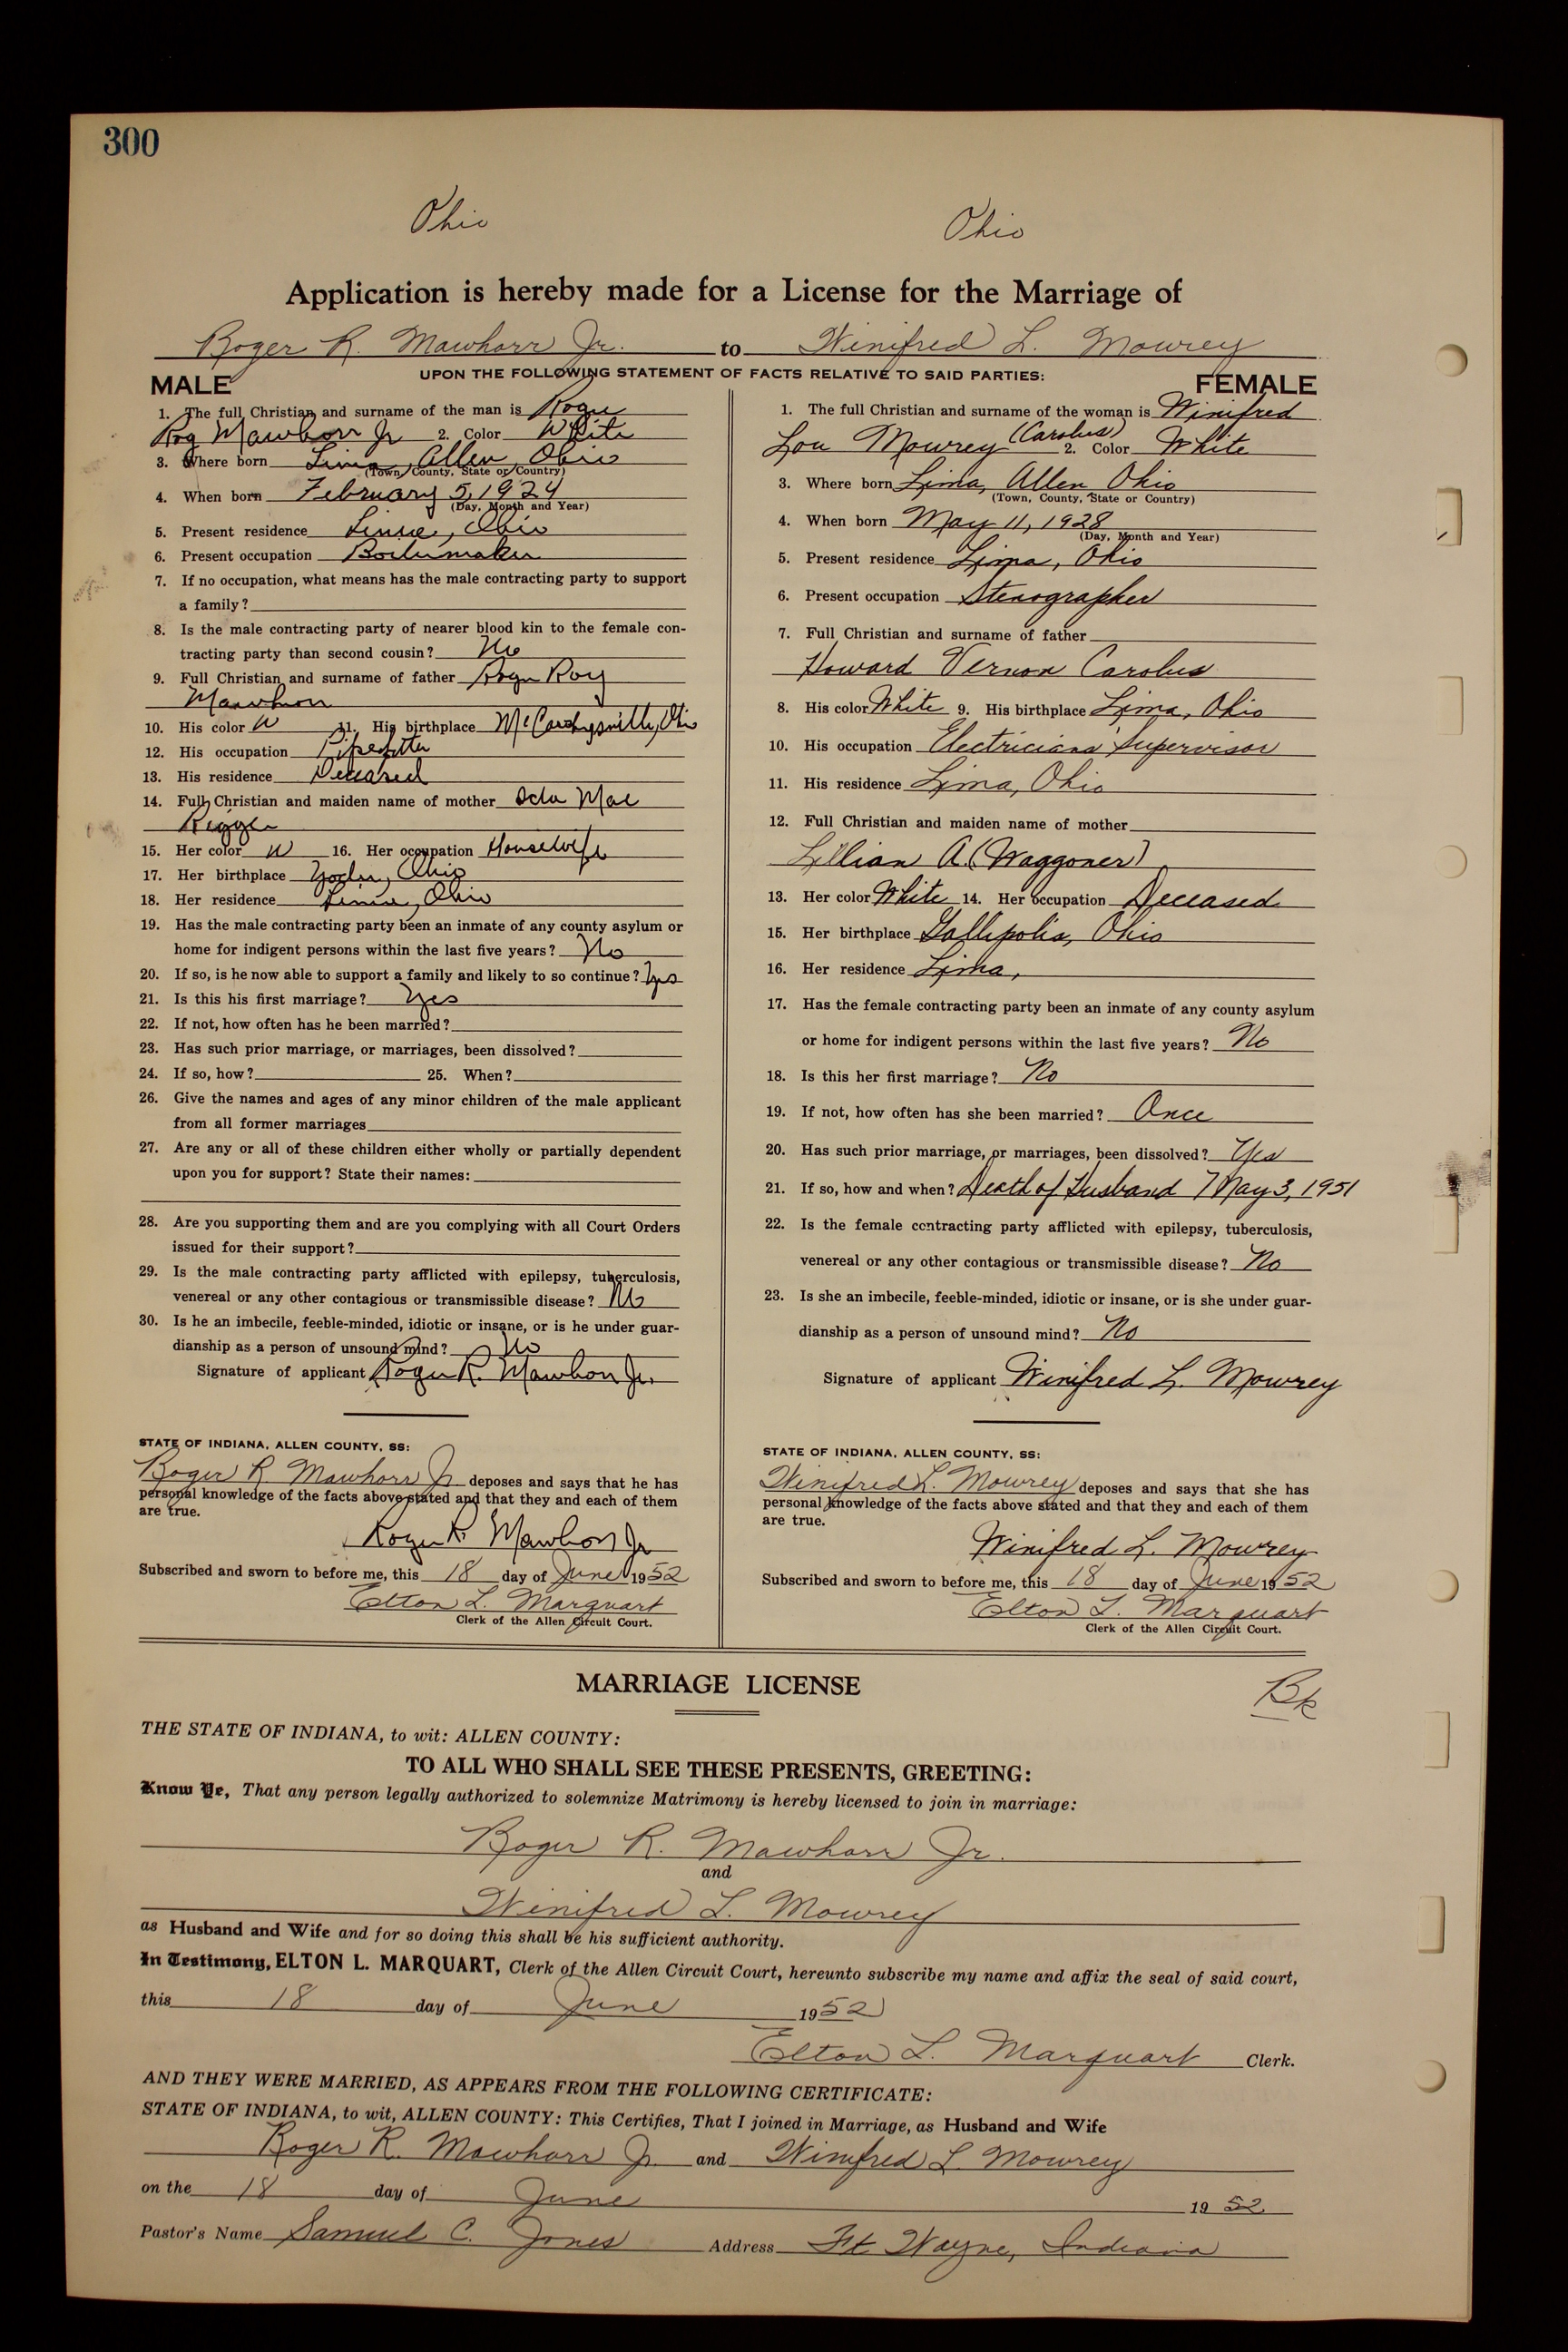 300
Ohio Ohio
Application is hereby made for a License for the Marriage of
Roger R. Mawhorr Jr. to Winifred L. Mowrey
UPON THE FOLLOWING STATEMENT OF FACTS RELATIVE TO SAID PARTIES:
MALE
1. The full Christian and surname of the man is Roger
Roy Mawhorr Jr 2. Color White
3. Where born Lima, Allen, Ohio
(Town, County, State or Country)
4. When born February 5, 1924
(Day, Month and Year)
5. Present residence Lima, Ohio
6. Present occupation Boilermaker
7. If no occupation, what means has the male contracting party to support
a family?
8. Is the male contracting party of nearer blood kin to the female con-
tracting party than second cousin? No
9. Full Christian and surname of father Roger Roy
Mawhorr
10. His color W 11. His birthplace Ohio
12. His occupation Pipefitter
13. His residence Deceased
14. Full Christian and maiden name of mother Mae
15. Her color W 16. Her occupation Housewife
17. Her birthplace Yoder, Ohio
18. Her residence Lima, Ohio
19. Has the male contracting party been an inmate of any county asylum or
home for indigent persons within the last five years? No
20. If so, is he now able to support a family and likely to so continue? Yes
21. Is this his first marriage? Yes
22. If not, how often has he been married?
23. Has such prior marriage, or marriages, been dissolved?
24. If so, how? 25. When?
26. Give the names and ages of any minor children of the male applicant
from all former marriages
27. Are any or all of these children either wholly or partially dependent
upon you for support? State their names:
28. Are you supporting them and are you complying with all Court Orders
issued for their support?
29. Is the male contracting party afflicted with epilepsy, tuberculosis,
venereal or any other contagious or transmissible disease? No
30. Is he an imbecile, feeble-minded, idiotic or insane, or is he under guar-
dianship as a person of unsound mind? No
Signature of applicant Roger R. Mawhorr Jr.
STATE OF INDIANA, ALLEN COUNTY, SS:
Roger R. Mawhorr Jr deposes and says that he has
personal knowledge of the facts above stated and that they and each of them
are true.
Roger R Mawhorr Jr
Subscribed and sworn to before me, this 18 day of June 1952
Elton L. Marquart
Clerk of the Allen Circuit Court.
FEMALE
1. The full Christian and surname of the woman is Winifred
Lou Mowrey (Carolus) 2. Color White
3. Where born Lima, Allen Ohio
(Town, County, State or Country)
4. When born May 11, 1928
(Day, Month and Year)
5. Present residence Lima, Ohio
6. Present occupation Stenographer
7. Full Christian and surname of father
Howard Vernon Carolus
8. His color White 9. His birthplace Lima, Ohio
10. His occupation Electricians Supervisor
11. His residence Lima, Ohio
12. Full Christian and maiden name of mother
Lillian A. (Waggoner)
13. Her color White 14. Her occupation Deceased
15. Her birthplace Gallipolis, Ohio
16. Her residence Lima,
17. Has the female contracting party been an inmate of any county asylum
or home for indigent persons within the last five years? No
18. Is this her first marriage? No
19. If not, how often has she been married? Once
20. Has such prior marriage, or marriages, been dissolved? Yes
21. If so, how and when? Death of Husband May 3, 1951
22. Is the female contracting party afflicted with epilepsy, tuberculosis,
venereal or any other contagious or transmissible disease? No
23. Is she an imbecile, feeble-minded, idiotic or insane, or is she under guar-
dianship as a person of unsound mind? No
Signature of applicant Winifred L. Mowrey
STATE OF INDIANA, ALLEN COUNTY, SS:
Winifred L. Mowrey deposes and says that she has
personal knowledge of the facts above stated and that they and each of them
are true.
Winifred L. Mowrey
Subscribed and sworn to before me, this 18 day of June 1952
Elton L. Marquart
Clerk of the Allen Circuit Court.
MARRIAGE LICENSE
Bk
THE STATE OF INDIANA, to wit: ALLEN COUNTY:
TO ALL WHO SHALL SEE THESE PRESENTS, GREETING:
Know Ye, That any person legally authorized to solemnize Matrimony is hereby licensed to join in marriage:
Roger R. Mawhorr Jr.
and
Winifred L. Mowrey
as Husband and Wife and for so doing this shall be his sufficient authority.
In Testimony, ELTON L. MARQUART, Clerk of the Allen Circuit Court, hereunto subscribe my name and affix the seal of said court,
this 18 day of June 1952
Elton L. Marquart Clerk.
AND THEY WERE MARRIED, AS APPEARS FROM THE FOLLOWING CERTIFICATE:
STATE OF INDIANA, to wit, ALLEN COUNTY: This Certifies, That I joined in Marriage, as Husband and Wife
Roger R. Mawhorr Jr. and Winifred L. Mowrey
on the 18 day of June 1952
Pastor's Name Samuel C. Jones Address Ft Wayne, Indiana